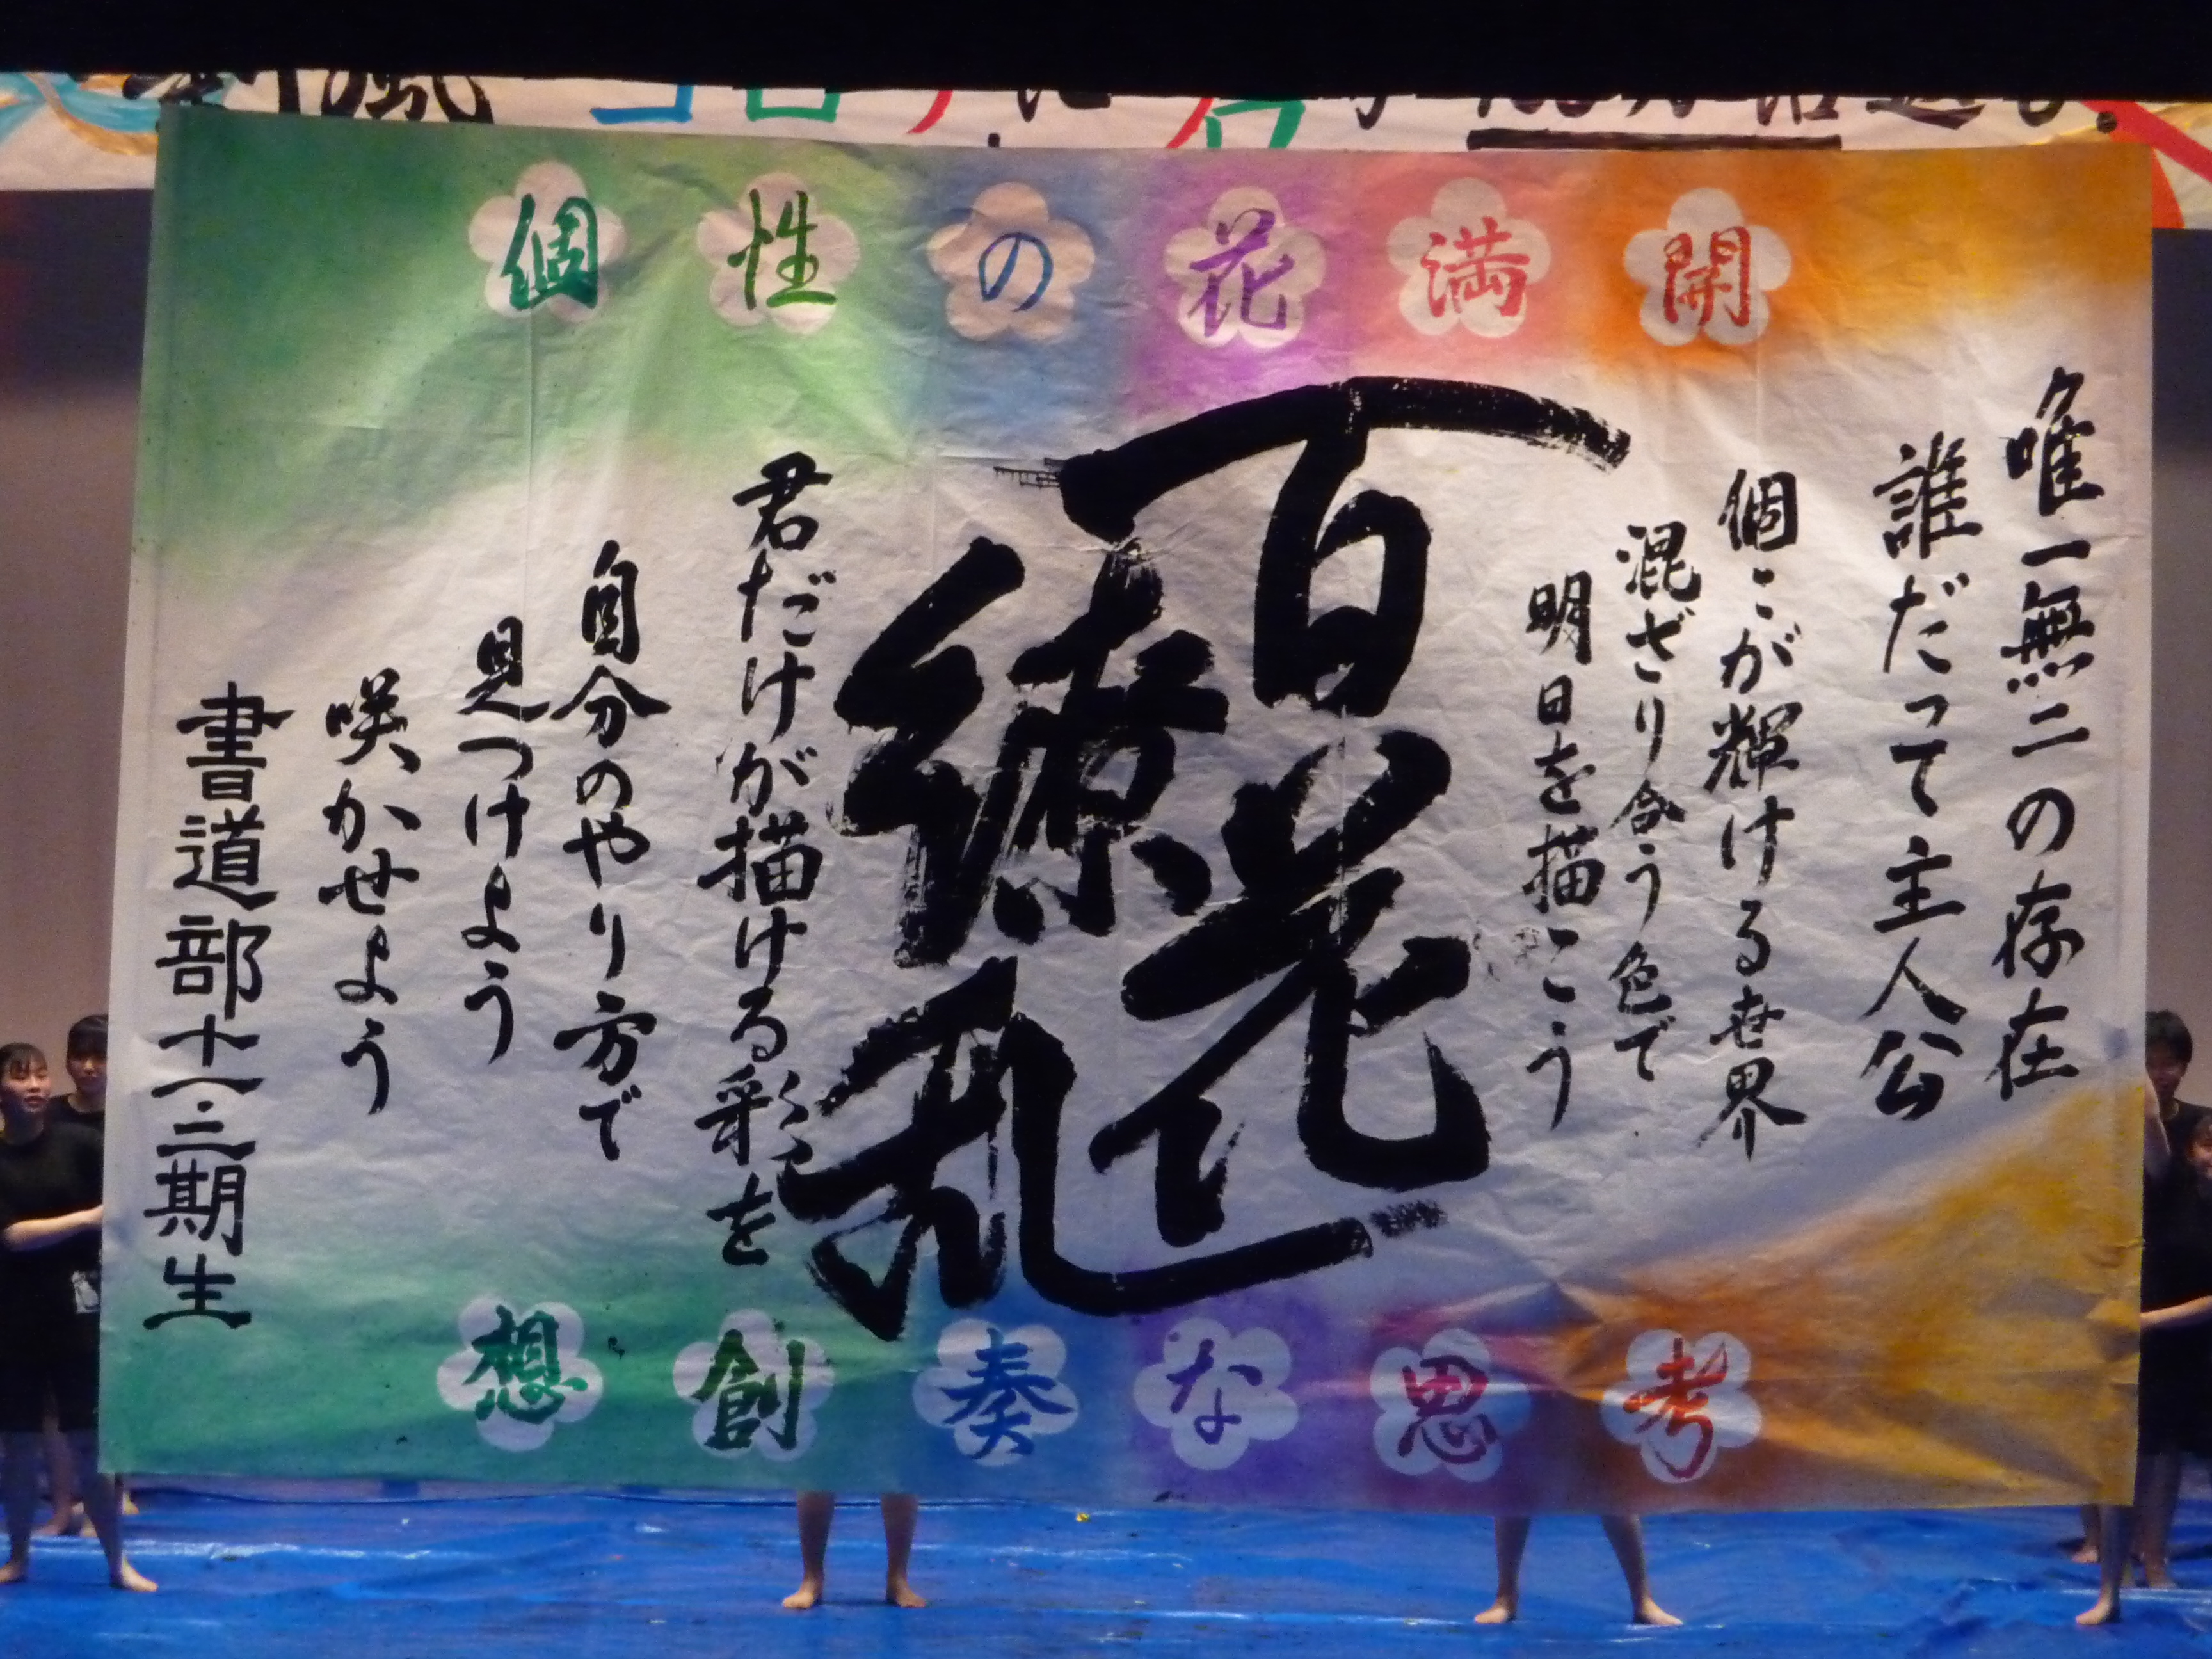 個性の花満開
唯一無二の存在
誰だって主人公
個々が輝ける世界
混ざり合う色で
明日を描こう
百花
繚乱
君だけが描ける彩を
自分のやり方で
見つけよう
咲かせよう
書道部十一・二期生
想創奏な思考